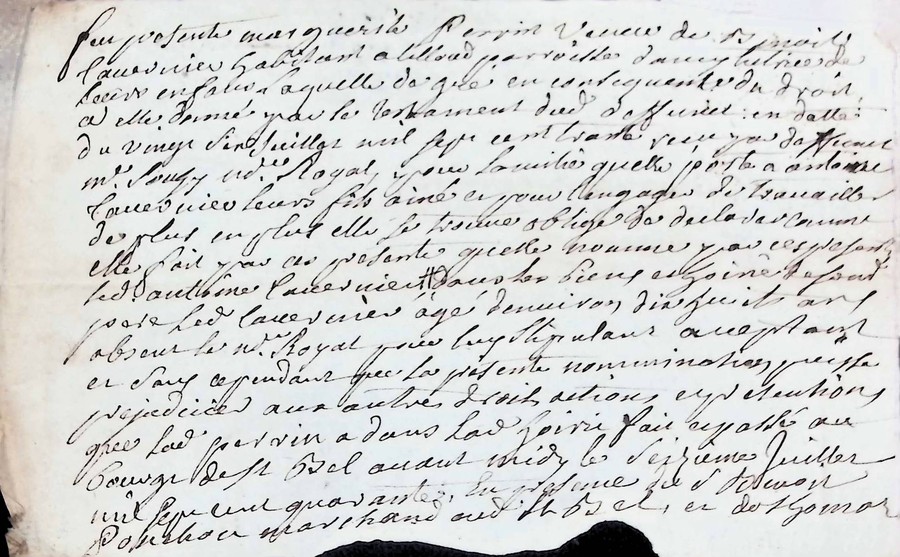 feu presente marguerite Perrin veuve de Benoit
Tavernier habitant a parroisse d'ancy tutrice de
leurs enfans laquelle de gré en consequance du droit
a elle donné par le testament dud deffunct en datte
du vingt six Juillet mil sept cent trante receu par deffunct
mr. Souzy nore. Royal, pour lamitié quelle porte a antoine
Tavernier leurs fils ainé et pour lengager de travailler
de plus en plus elle se trouve obligé de declarer comme
elle fait par ces presente quelle nomme par ces presentes
led. antoine Tavernier # dans les biens et hoirie de sond
pere led Tavernier agé denviron dix huit ans
absent le nore. Royal pour luy stipulant acceptant
et sans cependant que la presente nommination puisse
prejudicier aux autres droits actions et pretentions
que lad perrin a dans lad hoirie fait et passé au
bourg de st Bel avant midy le seizieme Juillet
mil sept cent quarante. En presence de s
Ponchon marchand aud st Bel, et de thomas